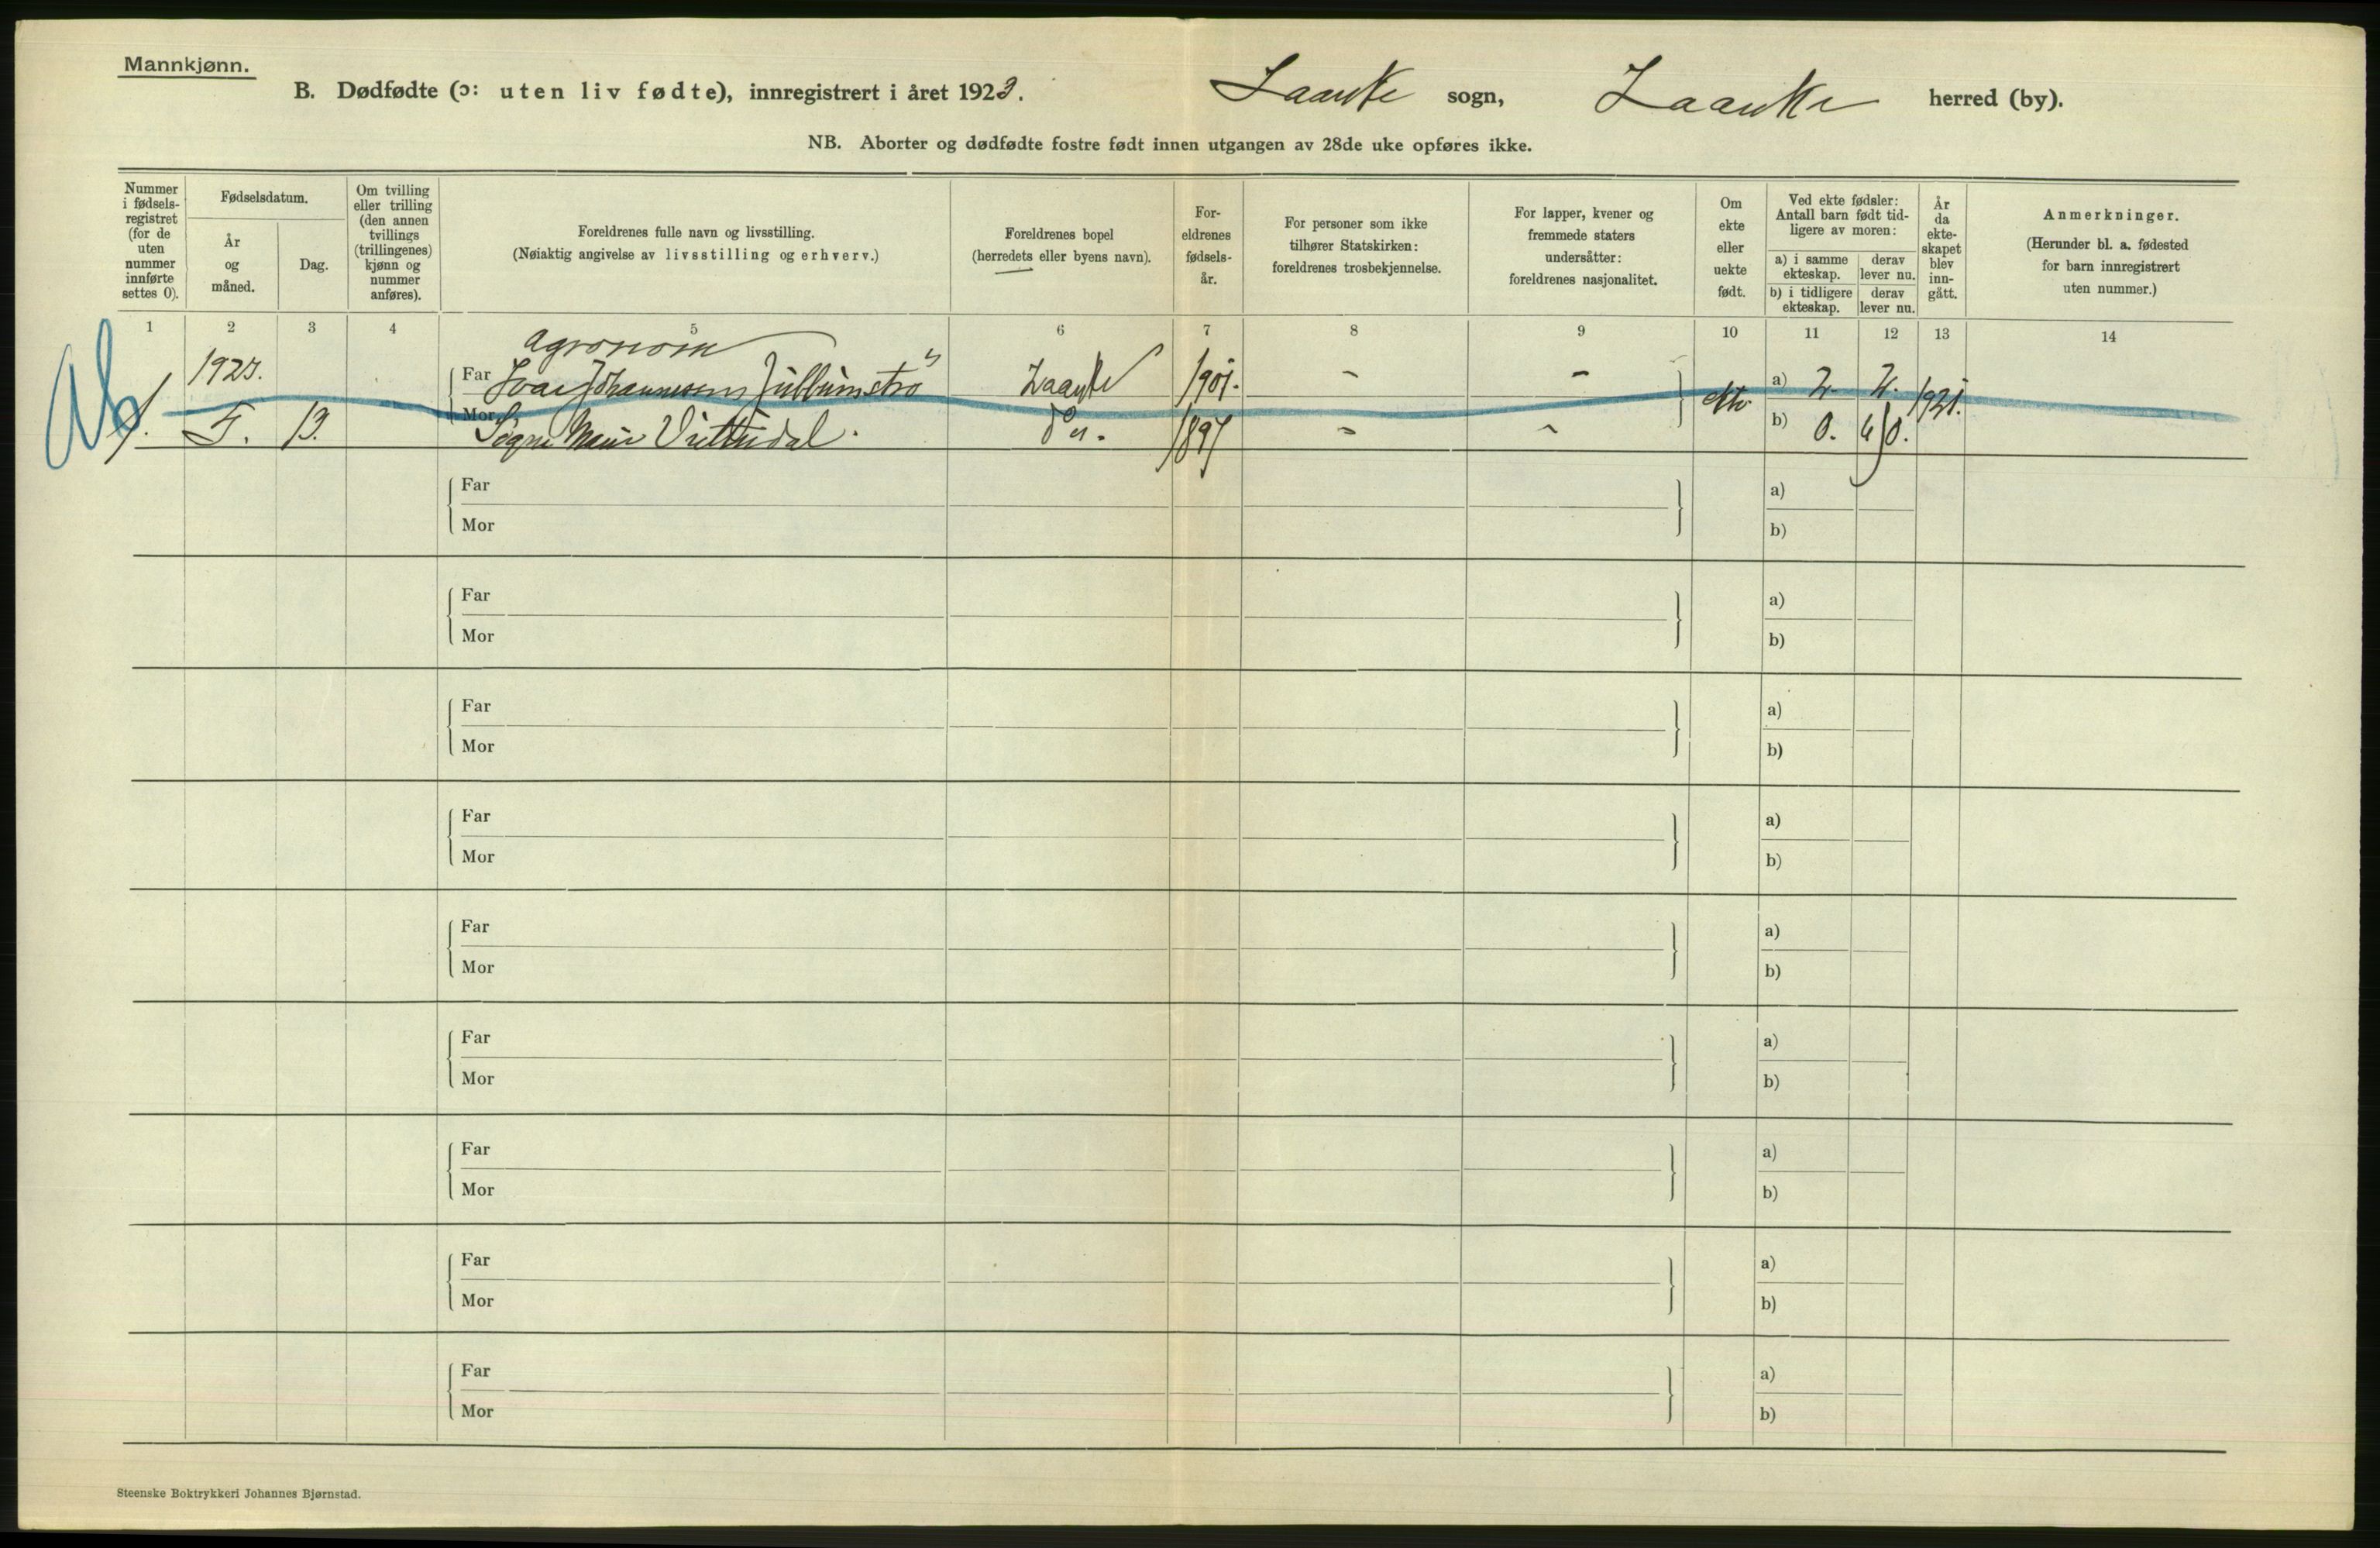 Mannkjønn.
B. Dødfødte (ɔ: uten liv fødte), innregistrert i året 1923. Laanke sogn, Laanke herred (by).
NB. Aborter og dødfødte fostre født innen utgangen av 28de uke opføres ikke.
Nummer i fødsels-registret (for de uten nummer innførte settes 0).
Fødselsdatum.
År og måned.
Dag.
Om tvilling eller trilling (den annen tvillings (trillingenes) kjønn og nummer anføres).
Foreldrenes fulle navn og livsstilling.
(Nøiaktig angivelse av livsstilling og erhverv.)
Foreldrenes bopel
(herredets eller byens navn).
For-eldrenes fødsels-år.
For personer som ikke tilhører Statskirken: foreldrenes trosbekjennelse.
For lapper, kvener og fremmede staters undersåtter: foreldrenes nasjonalitet.
Om ekte eller uekte født.
Ved ekte fødsler: Antall barn født tid-ligere av moren:
a) i samme ekteskap.
derav lever nu.
b) i tidligere ekteskap.
derav lever nu.
År da ekte-skapet blev inn-gått.
Anmerkninger.
(Herunder bl. a. fødested for barn innregistrert uten nummer.)
1 2 3 4 5 6 7 8 9 10 11 12 13 14
Agronom
1923. Far Ivar Laanke 1901. - - a) 2. 2. 1921.
1. 13. Mor Marie do 1897 - - ekte b) 0. 0.
Far a)
Mor b)
Far a)
Mor b)
Far a)
Mor b)
Far a)
Mor b)
Far a)
Mor b)
Far a)
Mor b)
Far a)
Mor b)
Far a)
Mor b)
Far a)
Mor b)
Steenske Boktrykkeri Johannes Bjørnstad.